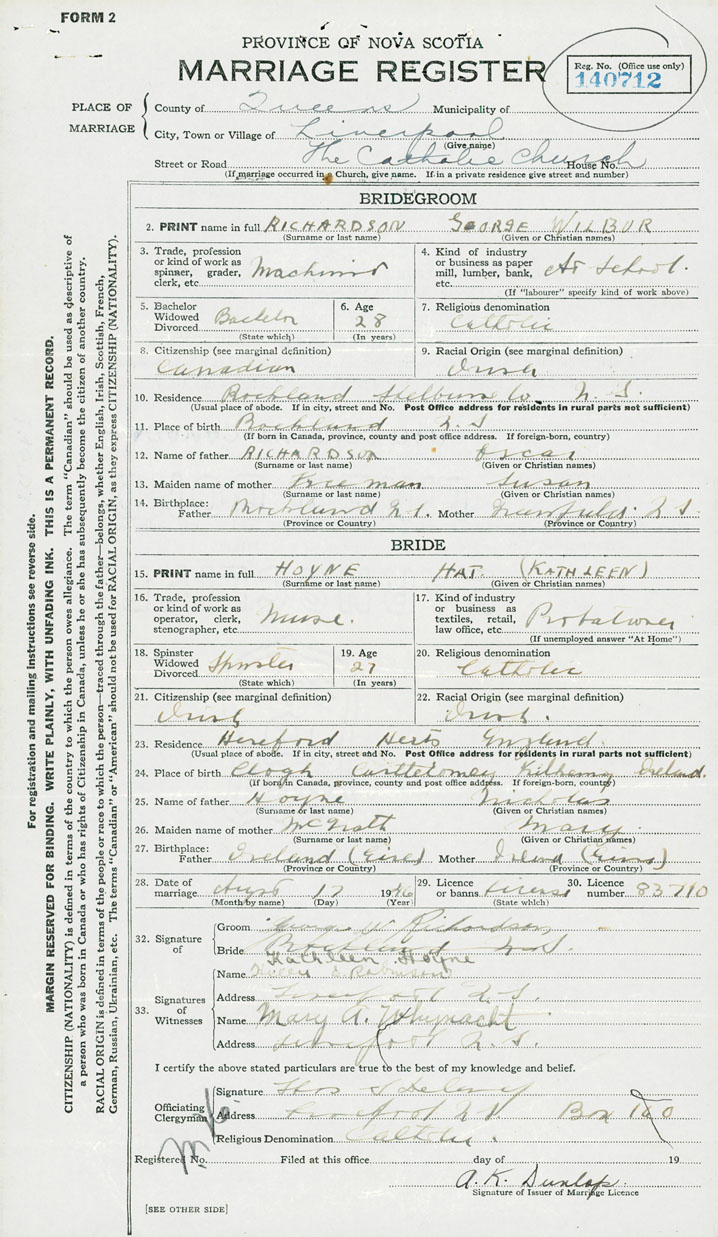 FORM 2
PROVINCE OF NOVA SCOTIA
MARRIAGE REGISTER
Reg. No. (Office use only)
140712
PLACE OF MARRIAGE
County of Queens Municipality of
City, Town or Village of Liverpool
(Give name)
Street or Road The Catholic Church House No.
(If marriage occurred in a Church, give name. If in a private residence give street and number)
BRIDEGROOM
2. PRINT name in full RICHARDSON GEORGE WILBUR
(Surname or last name) (Given or Christian names)
3. Trade, profession or kind of work as spinner, grader, clerk, etc. Machinist
4. Kind of industry or business as paper mill, lumber, bank, etc. At School.
(If "labourer" specify kind of work above)
5. Bachelor Widowed Divorced Bachelor
(State which)
6. Age 28
(In years)
7. Religious denomination Catholic
8. Citizenship (see marginal definition) Canadian
9. Racial Origin (see marginal definition) Irish
10. Residence Rockland Shelburne Co. N. S.
(Usual place of abode. If in city, street and No. Post Office address for residents in rural parts not sufficient)
11. Place of birth Rockland N. S
(If born in Canada, province, county and post office address. If foreign-born, country)
12. Name of father RICHARDSON Oscar
(Surname or last name) (Given or Christian names)
13. Maiden name of mother Freeman Susan
(Surname or last name) (Given or Christian names)
14. Birthplace: Father Rockland N. S. Mother N. S.
(Province or Country) (Province or Country)
BRIDE
15. PRINT name in full HOYNE HAT. (KATHLEEN)
(Surname or last name) (Given or Christian names)
16. Trade, profession or kind of work as operator, clerk, stenographer, etc. Nurse.
17. Kind of industry or business as textiles, retail, law office, etc. Probationer
(If unemployed answer "At Home")
18. Spinster Widowed Divorced Spinster
(State which)
19. Age 27
(In years)
20. Religious denomination Catholic
21. Citizenship (see marginal definition) Irish
22. Racial Origin (see marginal definition) Irish.
23. Residence Hereford Herts England
(Usual place of abode. If in city, street and No. Post Office address for residents in rural parts not sufficient)
24. Place of birth Clogh Castlecomer Kilkenny Ireland.
(If born in Canada, province, county and post office address. If foreign-born, country)
25. Name of father Hoyne Nicholas
(Surname or last name) (Given or Christian names)
26. Maiden name of mother McGrath Mary
(Surname or last name) (Given or Christian names)
27. Birthplace: Father Ireland (Eire) Mother Ireland (Eire)
(Province or Country) (Province or Country)
28. Date of marriage August 17 1946
(Month by name) (Day) (Year)
29. Licence or banns License
(State which)
30. Licence number 83710
32. Signature of
Groom George W Richardson
Rockland N. S.
Bride Kathleen Hoyne
33. Signatures of Witnesses
Name Robinson
Address Liverpool N. S.
Name Mary A. Whynacht
Address Liverpool N. S.
I certify the above stated particulars are true to the best of my knowledge and belief.
Officiating Clergyman
Signature Thos J Delaney
Address Liverpool N S Box 160
Religious Denomination Catholic.
Registered No. Filed at this office day of 19
A. K. Dunlop.
Signature of Issuer of Marriage Licence
[SEE OTHER SIDE]
For registration and mailing instructions see reverse side.
MARGIN RESERVED FOR BINDING. WRITE PLAINLY, WITH UNFADING INK. THIS IS A PERMANENT RECORD.
CITIZENSHIP (NATIONALITY) is defined in terms of the country to which the person owes allegiance. The term "Canadian" should be used as descriptive of
a person who was born in Canada or who has rights of Citizenship in Canada, unless he or she has subsequently become the citizen of another country.
RACIAL ORIGIN is defined in terms of the people or race to which the person—traced through the father—belongs, whether English, Irish, Scottish, French,
German, Russian, Ukrainian, etc. The terms "Canadian" or "American" should not be used for RACIAL ORIGIN, as they express CITIZENSHIP (NATIONALITY).